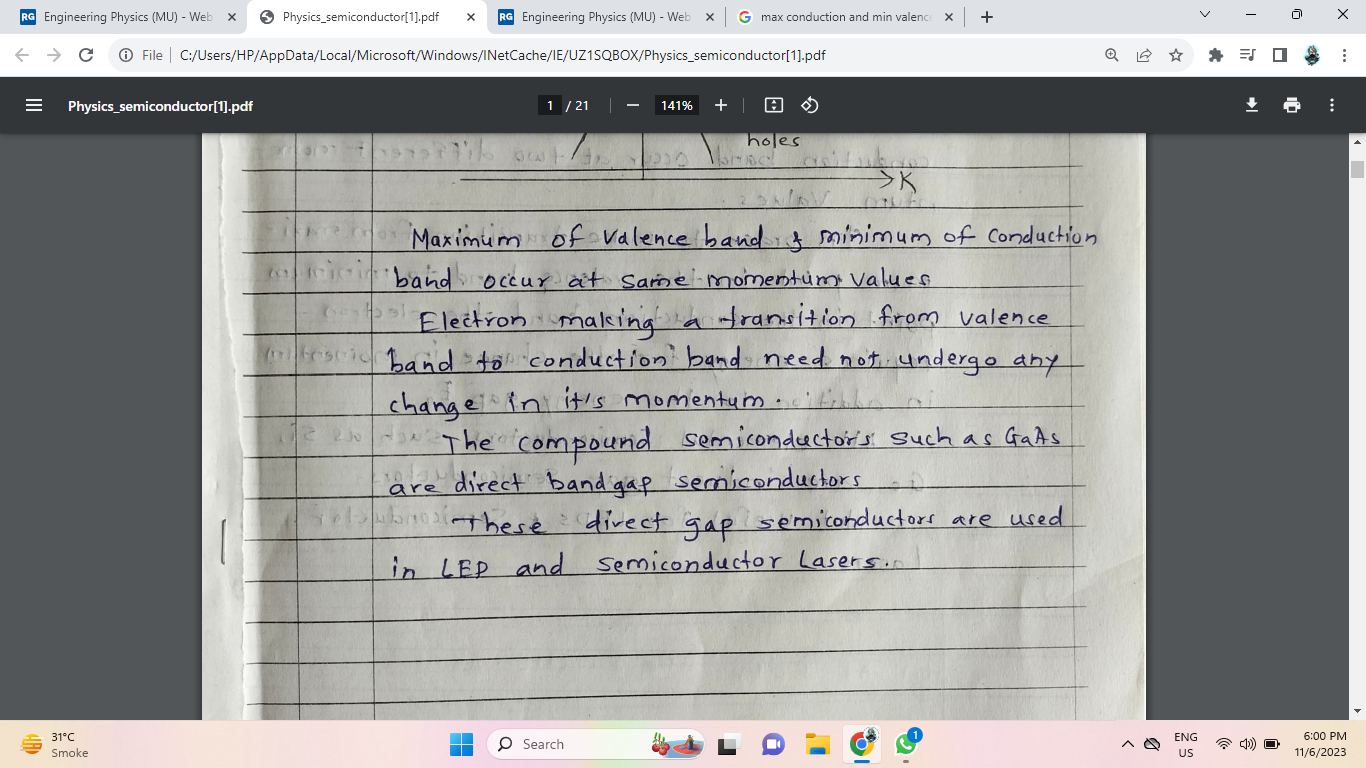 Engineering Physics (MU) - Web
Physics_semiconductor[1].pdf
Engineering Physics (MU) - Web
max conduction and min valenc
File
C:/Users/HP/AppData/Local/Microsoft/Windows/INetCache/IE/UZ1SQBOX/Physics_semiconductor[1].pdf
Physics_semiconductor[1].pdf
1 / 21
141%
holes
K
Maximum of Valence band & minimum of Conduction
band occur at same momentum Values
Electron making a transition from Valence
band to conduction band need not undergo any
change in it's momentum.
The compound semiconductors such as GaAs
are direct band gap semiconductors
These direct gap semiconductors are used
in LED and semiconductor Lasers.
31°C
Smoke
Search
1
ENG
US
6:00 PM
11/6/2023